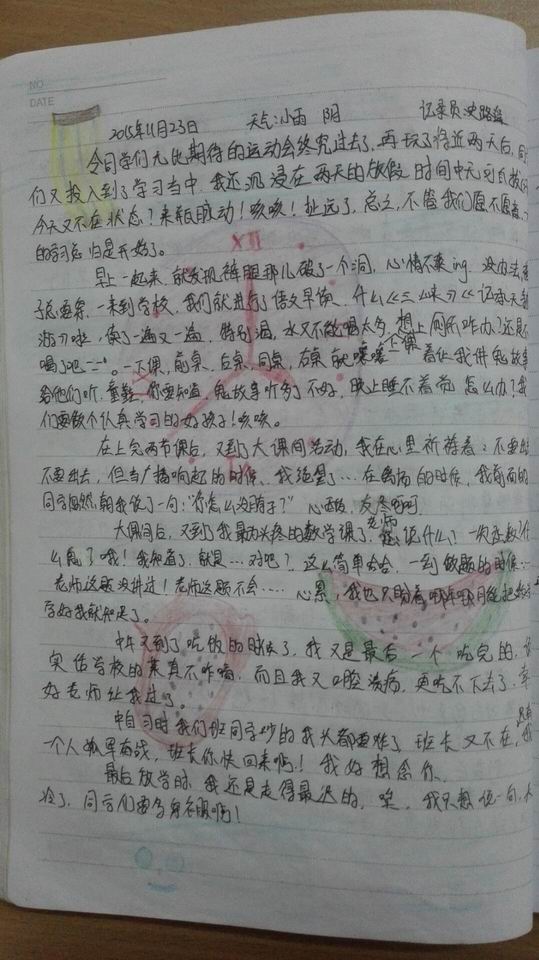 NO
DATE
2015年11月23日 天气:小雨 阴 记录员
令同学们无比期待的运动会终究过去了,再玩了将近两天后,同
们又投入到了学习当中,我还沉浸在两天的放假时间中无法自拔
今天又不在状态?来瓶脉动!咳咳!扯远了,总之,不管我们愿不愿意,
的学习总归是开始了。
早上一起来,就发现裤腿那儿破了一个洞,心情不美ing,没办法
一来到学校,我们就进行了语文早读,什么《三峡》《记承天寺
游》啦,读了一遍又一遍,特别渴,水又不能喝太多,想上厕所咋办?还是
喝了吧。一下课,前桌、后桌、同桌、右桌就嚷嚷着让我讲鬼故事
给他们听,童鞋,你要知道,鬼故事听多了不好,晚上睡不着觉怎么办?我
们要做个认真学习的好孩子!咳咳。
在上完两节课后,又到了大课间活动,我在心里祈祷着:不要出
不要出去,但当广播响起的时候,我绝望了…在离场的时候,我前面的
同学忽然朝我说了一句:"你怎么没脖子?" 心酸,
大课间后,又到了我最为头疼的数学课了,老师说什么?一次函数?什
么鬼?哦!我知道了,就是…对吧?这么简单哈哈,一到做题的时候…
老师这题没讲过!老师这题不会…… 心累,我也只盼着哪年哪月能把数
学好我就知足了。
中午又到了吃饭的时候了,我又是最后一个吃完的,
实话学校的菜真不咋嘀,而且我又口腔溃疡,更吃不下去了,幸
好老师让我过了。
中自习时我们班同学吵的我头都要炸了,班长又不在,只有我
一个人孤军奋战,班长你快回来啊!我好想念你。
最后放学时,我还是走得最迟的,唉,我只想说一句,
冷了,同学们要多穿衣服啊!